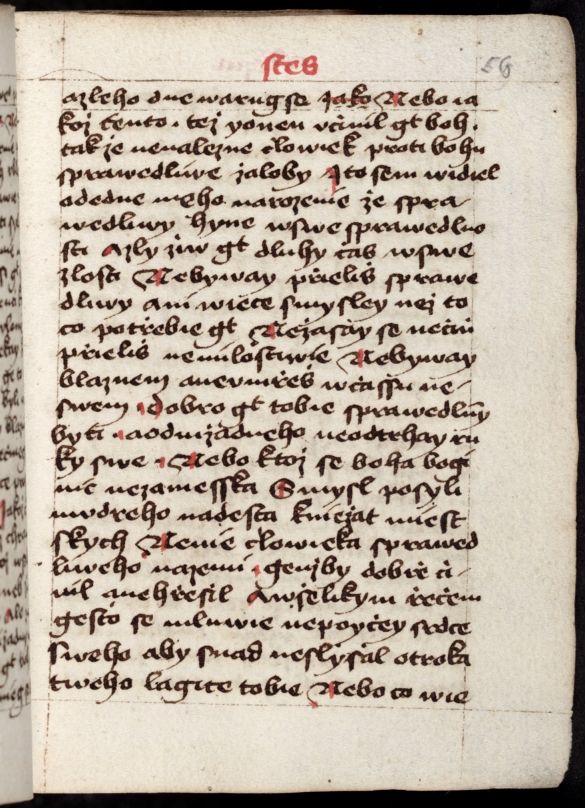 stes
56
azleho dne warugse Jako Nebo ia
koz tento · tez ponen vcinil gt boh ·
tak ze nenalezne clowiek proti bohu
sprawedliwe zaloby J to sem widiel
odedne meho narozenie ze spra-
wedliwy hyne wswe sprawedlno
sti Azly ziw gt dluhy cas wswe
zlosti Nebyway przielis sprawe
dliwy ani wiece smysley nez to
co potrzebie gt Nezasczy se necin
przielis nemilostiwie Nebyway
blaznem aneumrzes wczassu ne-
swem · Dobro gt tobie sprawedlny
byti · aodnizadneho neodtrhay ru
ky swe · Nebo ktoz se boha bogi
nic nezamesska Smysl posyli
mudreho nadesta kniezat miest
skych Nenie clowieka sprawed
liweho nazemi · genzby dobrze ci-
nil anehrzesil Awselikym rzecem
gesto se mluwie nepoyczey srdce
sweho aby snad neslysal otroka
tweho lagice tobie Nebo co wie